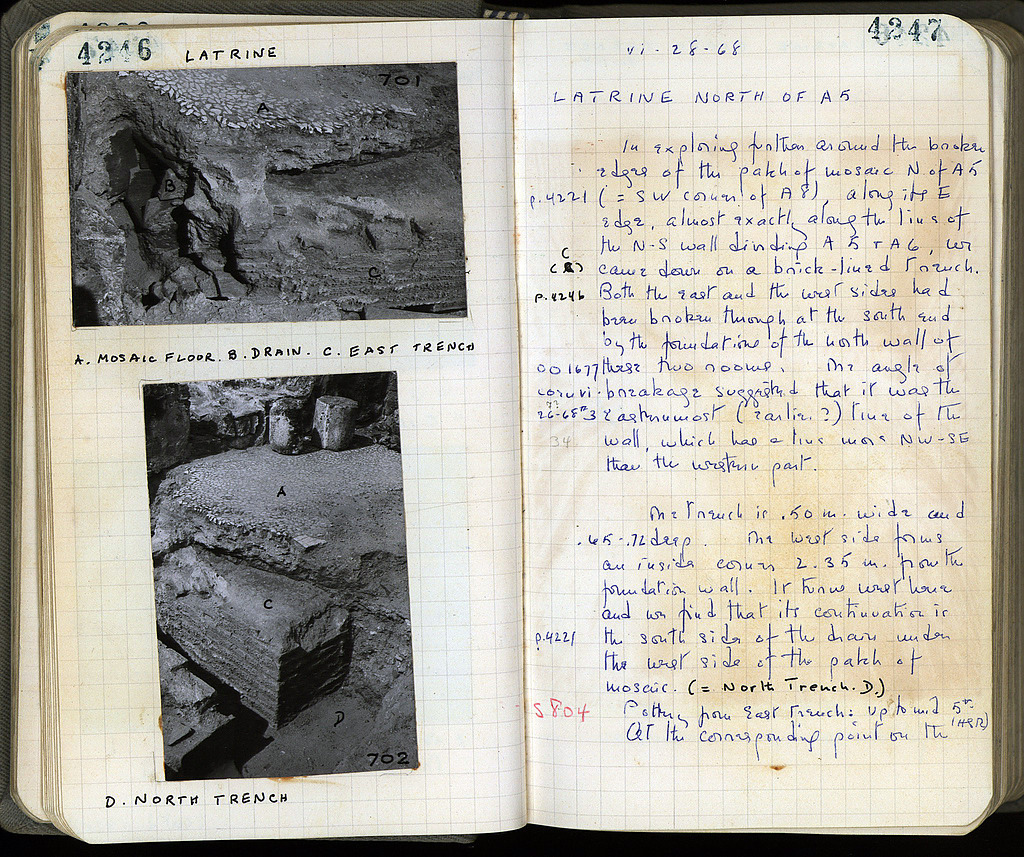 4246 LATRINE
701
A
B
C
A. MOSAIC FLOOR. B. DRAIN. C. EAST TRENCH
A
C
D
702
D. NORTH TRENCH
4247
vi-28-68
LATRINE NORTH OF A5
In exploring further around the broken
edges of the patch of mosaic N. of A5
p.4221 (= SW corner of A8), along its E
edge, almost exactly along the line of
the N-S wall dividing A5 + A6, we
(C) came down on a brick-lined trench.
p.4246 Both the east and the west sides had
been broken through at the south end
by the foundations of the north wall of
001677 these two rooms. The angle of
breakage suggested that it was the
easternmost (earlier?) line of the
34 wall, which has a line more NW-SE
than the western part.
The trench is .50 m. wide and
.65-.72 deep. The west side forms
an inside corner 2.35 m. from the
foundation wall. It turns west here
and we find that its continuation is
p.4221 the south side of the drain under
the west side of the patch of
mosaic. (= North Trench. D.)
S804 Pottery from East Trench: up to mid 5th
(HSR)
At the corresponding point on the